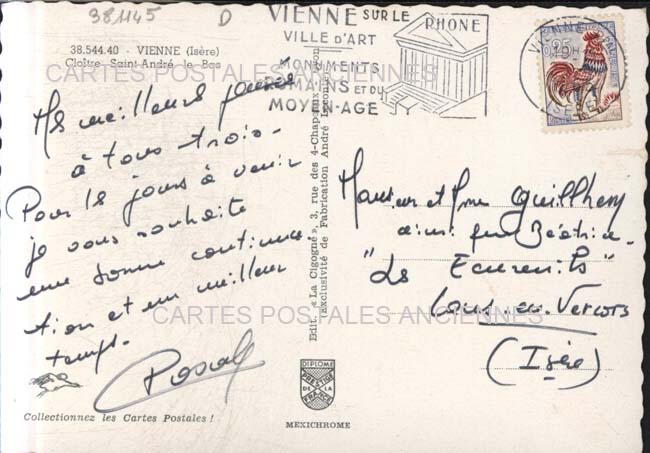 381145 D
VIENNE SUR LE RHONE
VILLE D'ART
MONUMENTS
ROMAINS ET DU
MOYEN-AGE
VIENNE
ISERE
0,25
38.544.40 - VIENNE (Isère)
Cloître Saint-André le Bas
CARTES POSTALES ANCIENNES
Mes meilleures pensées
à tous trois.
Pour les jours à venir
je vous souhaite
une bonne continua-
tion et un meilleur
temps.
Pascal
Collectionnez les Cartes Postales !
Edit. « La Cigogne », 3, rue des 4-Chapeaux, Lyon
Exclusivité de Fabrication André Leconte
DIPLOME
PRESTIGE
DE LA
FRANCE
MEXICHROME
Monsieur et Mme Guilhery
ainsi que Béatrice.
"Les Ecureuils"
Lans en Vercors
(Isère)
CARTES POSTALES ANCIENNES